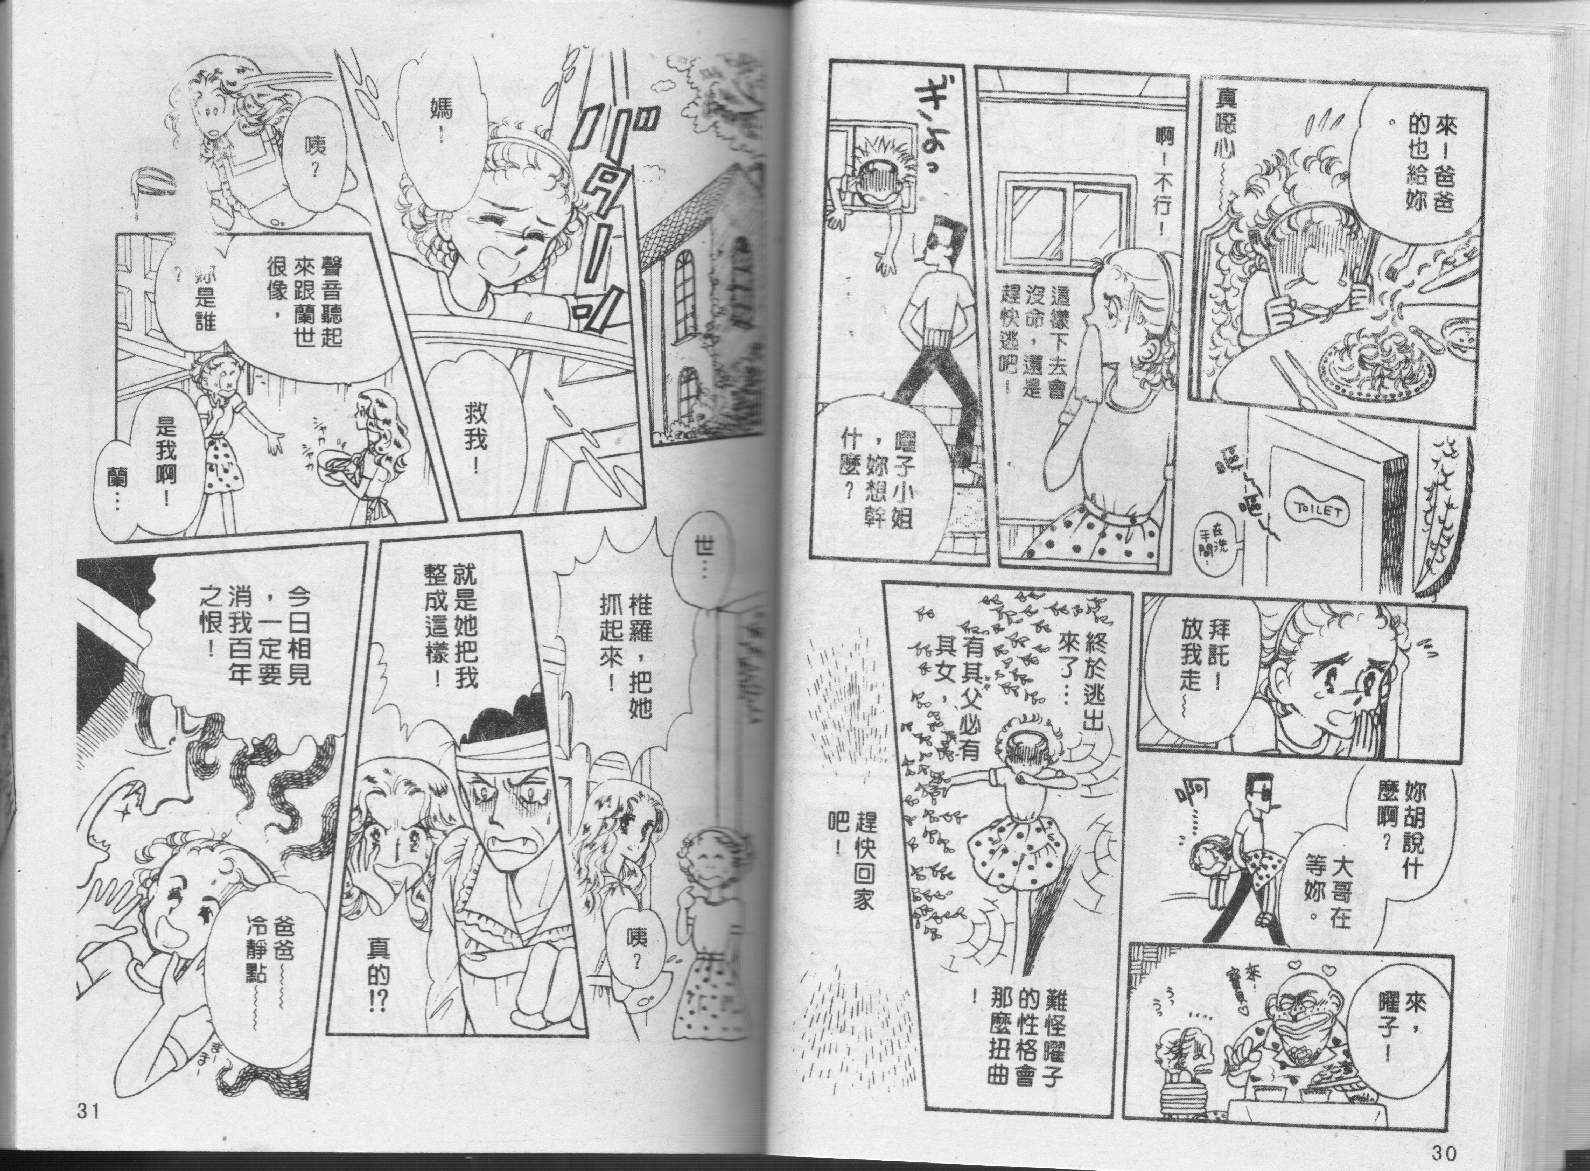 來！爸爸
的也給妳
。
真噁心～～
TOILET
在洗
手間
啊！不行！
這樣下去會
沒命，還是
趕快逃吧！
ギょっ
嚁子小姐
，妳想幹
什麼？
拜託！
放我走～
妳胡說什
麼啊？
大哥在
等妳。
啊
……
來，
嚁子！
來…
寶貝
終於逃出
來了…
有其父必有
其女，
難怪嚁子
的性格會
那麼扭曲
！
趕快回家
吧！
30
バタターン
媽！
救我！
咦？
聲音聽起
來跟蘭世
很像，
妳是誰
？
シャカ
シャカ
是我啊！
蘭…
世…
椎羅，把她
抓起來！
咦？
就是她把我
整成這樣！
真的!?
今日相見
，一定要
消我百年
之恨！
爸爸～～
冷靜點～～
まーまー
31